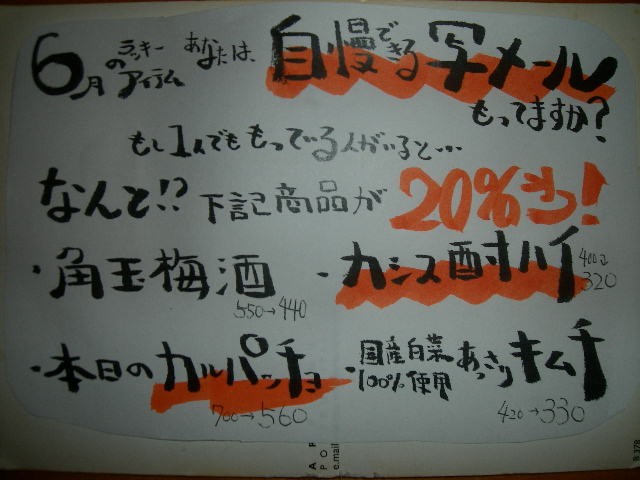 6月のラッキーアイテム あなたは、自慢できる写メール
もってますか?
もし1人でももっている人がいると…
なんと!? 下記商品が 20%オフ!
・角玉梅酒 ・カシス酎ハイ
550→440 400→320
・本日のカルパッチョ ・国産白菜100%使用 あっさりキムチ
700→560 420→330
A P
P O
e.mail
B 378